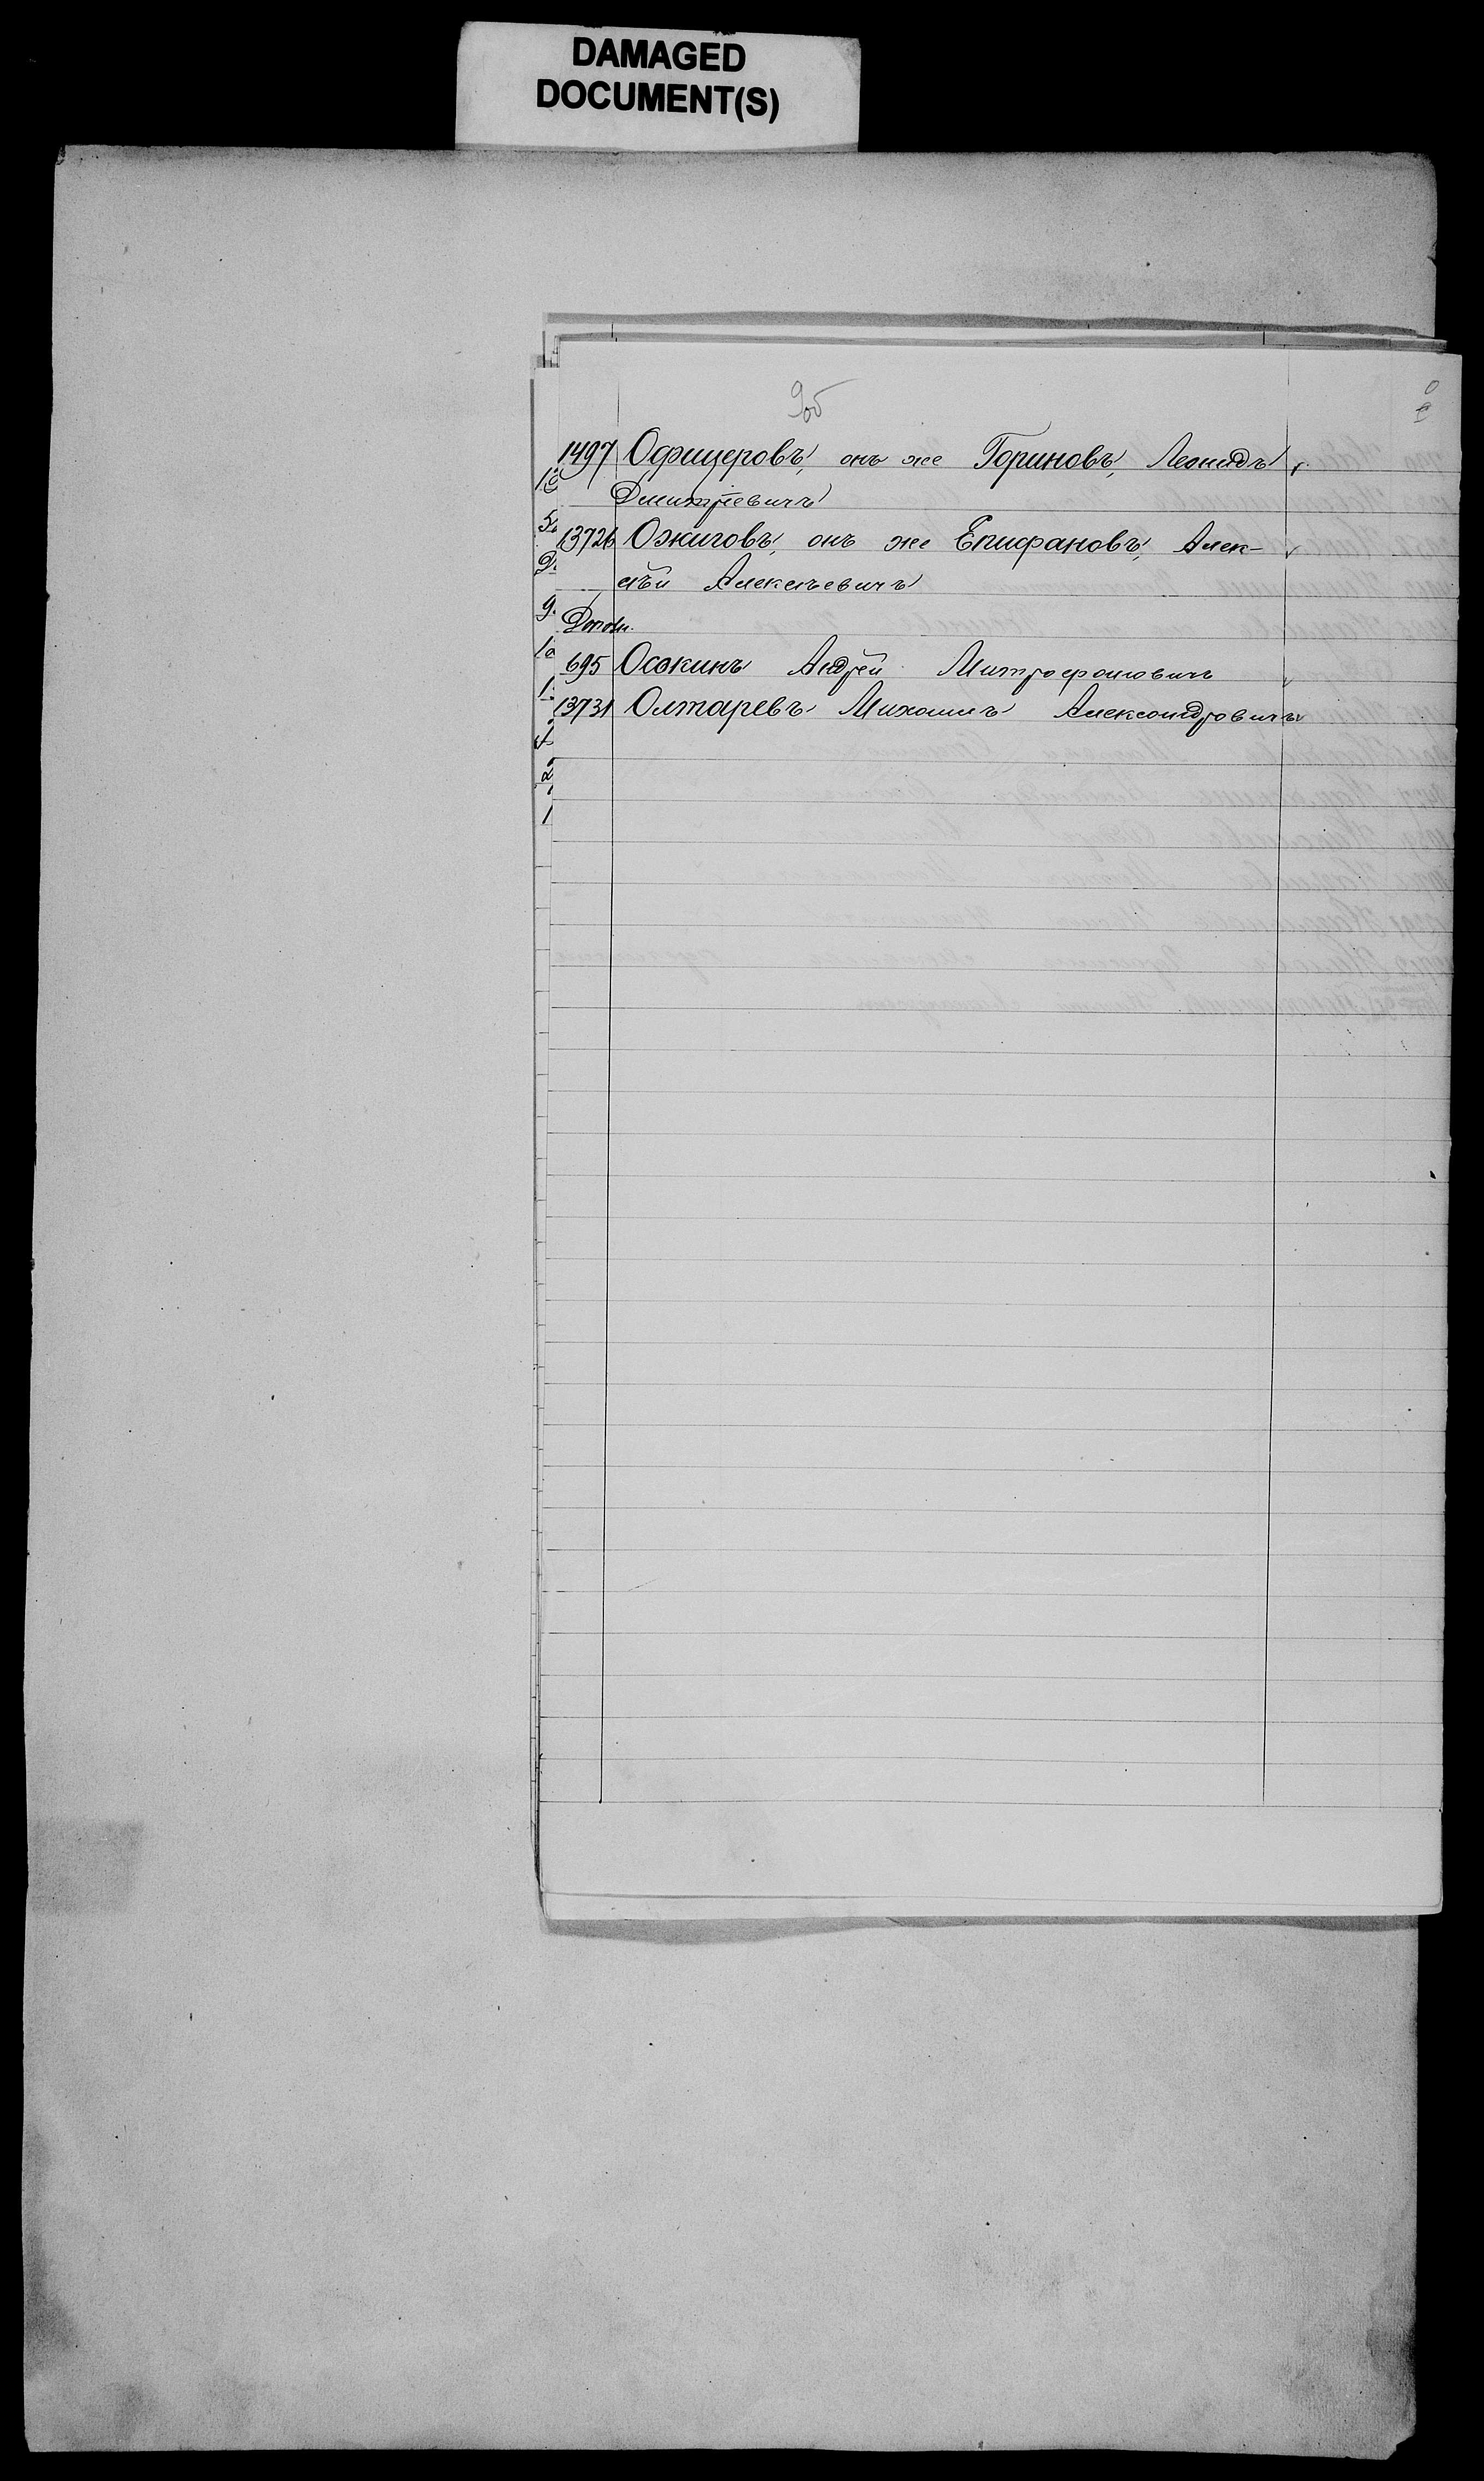 DAMAGED
DOCUMENT(S)
1497 Офицеровъ, онъ же Гориновъ, Леонидъ
Дмитріевичъ
13726 Ожиговъ, онъ же Епифановъ, Алек-
сѣй Алексѣевичъ
Дополн.
695 Осокинъ Андрей Митрофановичъ
13731 Олтаревъ Михаилъ Александровичъ